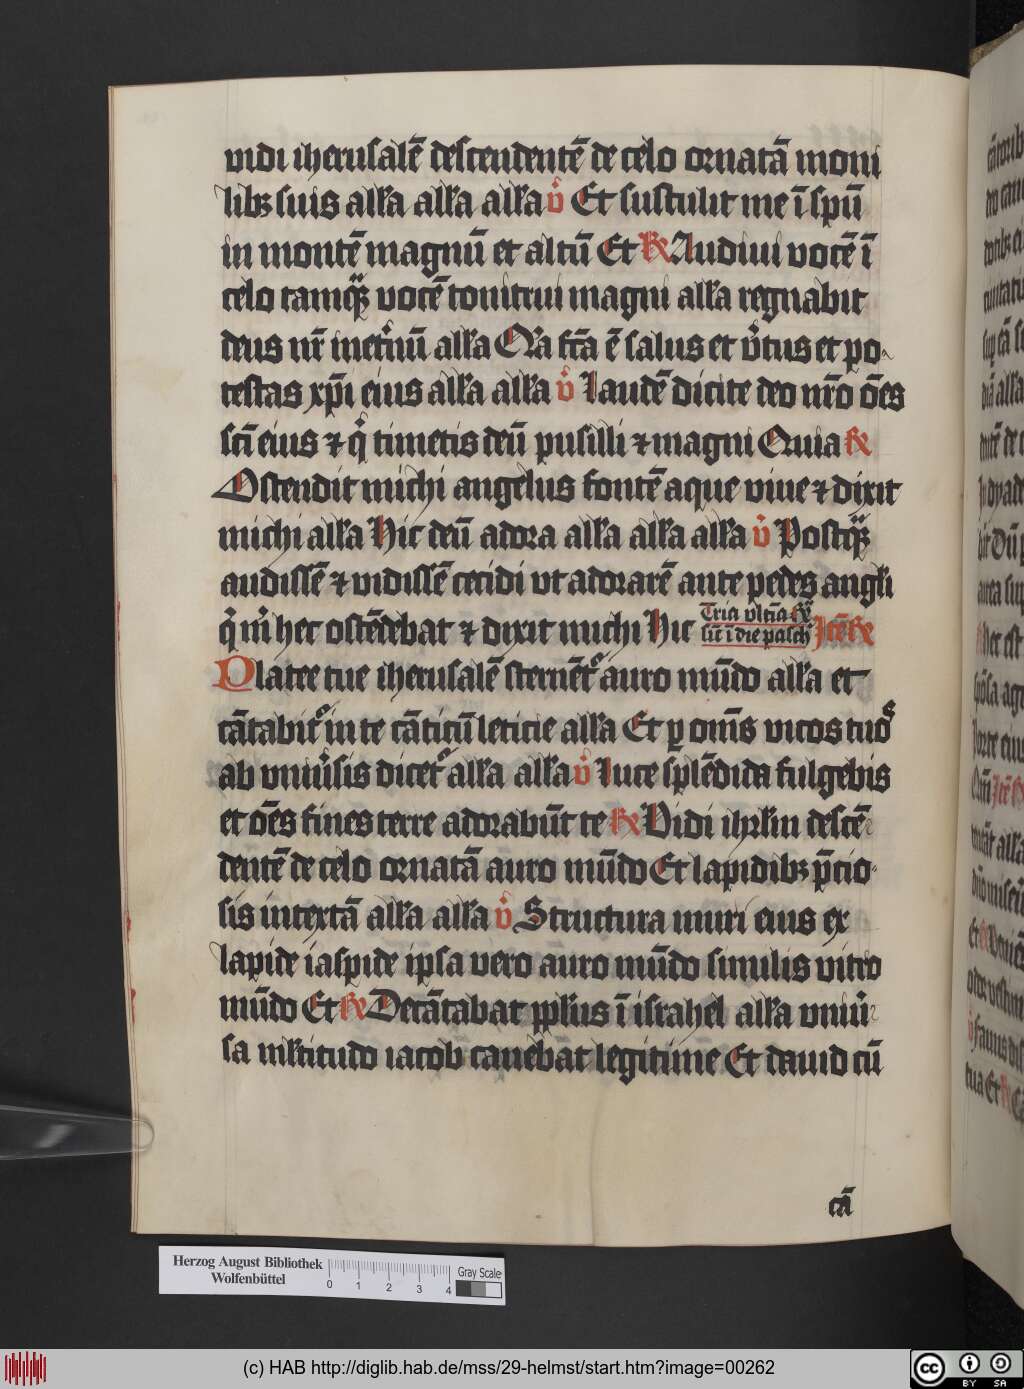 vidi iherusalē descendentē de celo ornatā moni
libꝫ suis alła alła alła v̊ Et sustulit me ī spū
in montē magnū et altū Et ℞ Audiui vocē ī
celo tamqᷓꝫ vocē tonitrui magni alła regnabit
deus nr̄ inet̉nū alła Q̄a fc̄a ē salus et v̉tus et po-
testas xp̄i eius alła alła v̊ Laudē dicite deo nr̄o ōes
scī eius ⁊ q̊ timetis deū pusilli ⁊ magni Quia ℞
Ostendit michi angelus fontē aque viue ⁊ dixit
michi alła Hic deū adora alła alła alła v̊ Postqᷓꝫ
audissē ⁊ vidissē cecidi vt adorarē ante pedes angłi
q̇ m̉ hec ostēdebat ⁊ dixit michi Hic Tria vltīa ℞
sūt ī die pasch̄ Itē ℞
Platee tue iherusalē sternēt᷑ auro mūdo alła et
cātabit᷑ in te cāticū leticie alła Et ꝑ om̄s vicos tuos
ab vniủsis dicet᷑ alła alła v̊ Luce splēdida fulgebis
et ōes fines terre adorabūt te ℞ Vidi ihrłm descē-
dentē de celo ornatā auro mūdo Et lapidibꝫ p̄cio-
sis intextā alła alła v̊ Structura muri eius ex
lapide iaspide ipsa vero auro mūdo similis vitro
mūdo Et ℞ Decātabat ppłus ī israhel alła vniủ-
sa młtitudo iacob canebat legitime Et dauid cū
cā
Herzog August Bibliothek
Wolfenbüttel
0 1 2 3 4
Gray Scale
(c) HAB http://diglib.hab.de/mss/29-helmst/start.htm?image=00262
cc BY SA